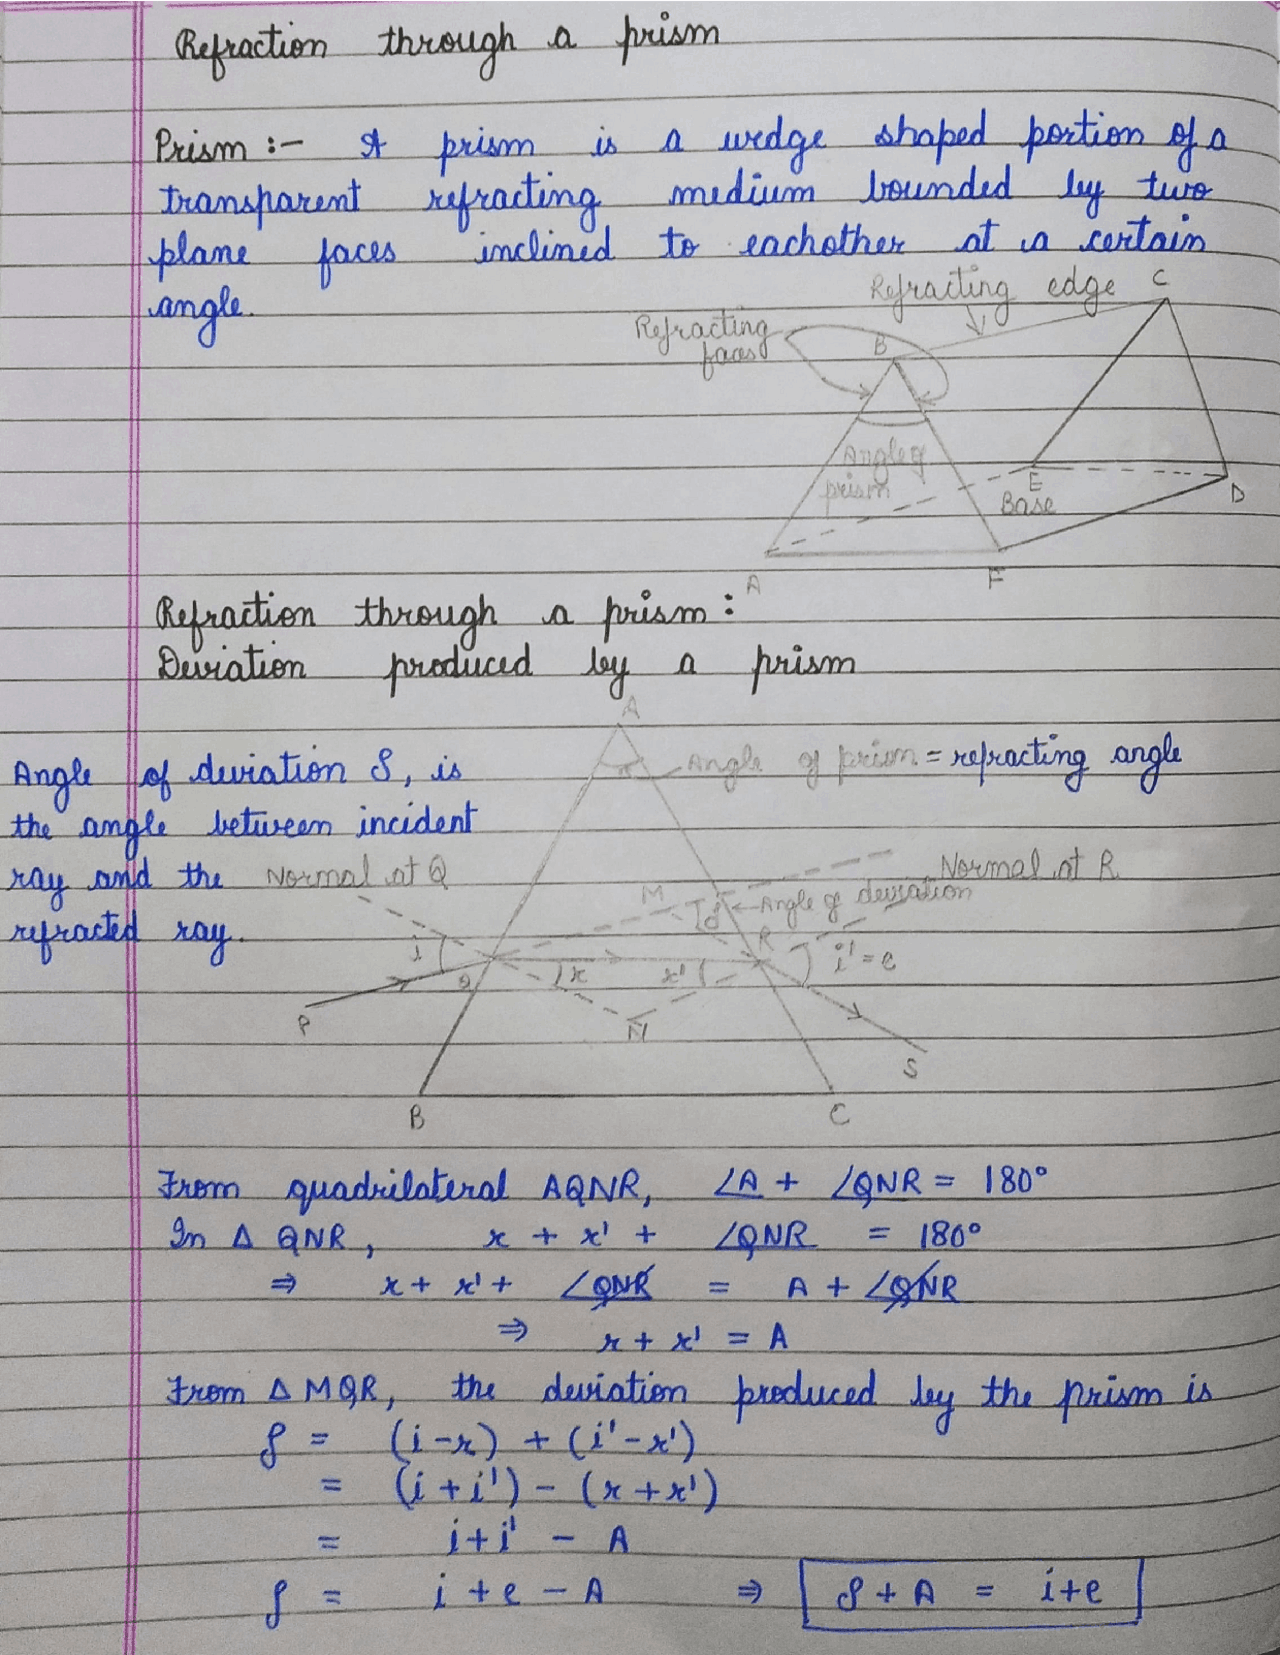 Refraction through a prism
Prism :- A prism is a wedge shaped portion of a
transparent refracting medium bounded by two
plane faces inclined to eachother at a certain
angle.
Refracting edge C
Refracting
faces
B
Angle of
prism
E
Base
D
A
F
Refraction through a prism :
Deviation produced by a prism
A
Angle of prism = refracting angle
Angle of deviation δ, is
the angle between incident
ray and the
refracted ray.
Normal at Q
Normal at R
M
δ
Angle of deviation
i
Q
r
r'
R
i' = e
P
N
S
B
C
From quadrilateral AQNR, ∠A + ∠QNR = 180°
In Δ QNR, r + r' + ∠QNR = 180°
⇒ r + r' + ∠QNR = A + ∠QNR
⇒ r + r' = A
From Δ MQR, the deviation produced by the prism is
δ = (i-r) + (i'-r')
= (i+i') - (r+r')
= i+i' - A
δ = i+e-A ⇒ δ+A = i+e